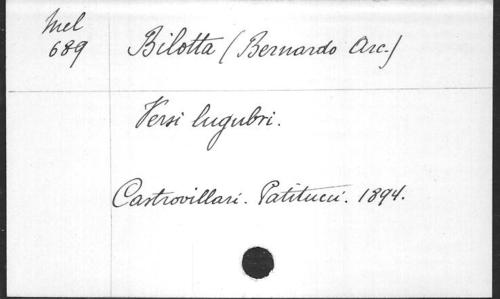 Mel
689
Bilotta (Bernardo Arc.)
Versi lugubri.
Castrovillari. Patitucci. 1894.